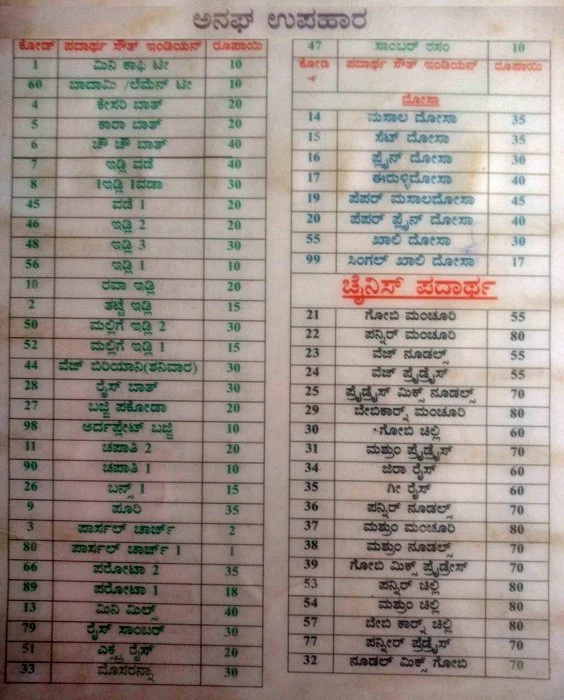 ಅನಘ ಉಪಹಾರ
ಕೋಡ್ ಪದಾರ್ಥ ಸೌತ್ ಇಂಡಿಯನ್ ರೂಪಾಯಿ
1 ಮಿನಿ ಕಾಫಿ ಟೀ 10
60 ಬಾದಾಮಿ /ಲೆಮೆನ್ ಟೀ 10
4 ಕೇಸರಿ ಬಾತ್ 20
5 ಕಾರಾ ಬಾತ್ 20
6 ಚೌ ಚೌ ಬಾತ್ 40
7 ಇಡ್ಲಿ ವಡೆ 40
8 1ಇಡ್ಲಿ 1ವಡಾ 30
45 ವಡೆ 1 20
46 ಇಡ್ಲಿ 2 20
48 ಇಡ್ಲಿ 3 30
56 ಇಡ್ಲಿ 1 10
10 ರವಾ ಇಡ್ಲಿ 20
2 ತಟ್ಟೆ ಇಡ್ಲಿ 15
50 ಮಲ್ಲಿಗೆ ಇಡ್ಲಿ 2 30
52 ಮಲ್ಲಿಗೆ ಇಡ್ಲಿ 1 15
44 ವೆಜ್ ಬಿರಿಯಾನಿ(ಶನಿವಾರ) 30
28 ರೈಸ್ ಬಾತ್ 30
27 ಬಜ್ಜಿ ಪಕೋಡಾ 20
98 ಅರ್ದಪ್ಲೇಟ್ ಬಜ್ಜಿ 10
11 ಚಪಾತಿ 2 20
90 ಚಪಾತಿ 1 10
26 ಬನ್ಸ್ 1 15
9 ಪೂರಿ 35
3 ಪಾರ್ಸಲ್ ಚಾರ್ಜ್ 2
80 ಪಾರ್ಸಲ್ ಚಾರ್ಜ್ 1 1
66 ಪರೋಟಾ 2 35
89 ಪರೋಟಾ 1 18
13 ಮಿನಿ ಮಿಲ್ಸ್ 40
79 ರೈಸ್ ಸಾಂಬರ್ 30
51 ಎಕ್ಸ್ಟ್ರ ರೈಸ್ 20
33 ಮೊಸರನ್ನಾ 30
47 ಸಾಂಬರ್ ರಸಂ 10
ಕೋಡಿ ಪದಾರ್ಥ ಸೌತ್ ಇಂಡಿಯನ್ ರೂಪಾಯಿ
ದೋಸಾ
14 ಮಸಾಲ ದೋಸಾ 35
15 ಸೆಟ್ ದೋಸಾ 35
16 ಪ್ಲೈನ್ ದೋಸಾ 30
17 ಈರುಳ್ಳಿದೋಸಾ 40
19 ಪೆಪರ್ ಮಸಾಲದೋಸಾ 45
20 ಪೆಪರ್ ಪ್ಲೈನ್ ದೋಸಾ 40
55 ಖಾಲಿ ದೋಸಾ 30
99 ಸಿಂಗಲ್ ಖಾಲಿ ದೋಸಾ 17
ಚೈನಿಸ್ ಪದಾರ್ಥ
21 ಗೋಬಿ ಮಂಚೂರಿ 55
22 ಪನ್ನಿರ್ ಮಂಚೂರಿ 80
23 ವೆಜ್ ನೂಡಲ್ಸ್ 55
24 ವೆಜ್ ಪ್ರೈಡ್ರೈಸ್ 55
25 ಪ್ರೈಡ್ರೈಸ್ ಮಿಕ್ಸ್ ನೂಡಲ್ಸ್ 70
29 ಬೇಬಿಕಾರ್ನ್ ಮಂಚೂರಿ 80
30 ಗೋಬಿ ಚಿಲ್ಲಿ 60
31 ಮಶ್ರುಂ ಪ್ರೈಡ್ರೈಸ್ 70
34 ಜಿರಾ ರೈಸ್ 60
35 ಗೀ ರೈಸ್ 60
36 ಪನ್ನಿರ್ ನೂಡಲ್ಸ್ 70
37 ಮಶ್ರುಂ ಮಂಚೂರಿ 80
38 ಮಶ್ರುಂ ನೂಡಲ್ಸ್ 70
39 ಗೋಬಿ ಮಿಕ್ಸ್ ಪ್ರೈಡ್ರೇಸ್ 70
53 ಪನ್ನಿರ್ ಚಿಲ್ಲಿ 80
54 ಮಶ್ರುಂ ಚಿಲ್ಲಿ 80
57 ಬೇಬಿ ಕಾರ್ನ್ ಚಿಲ್ಲಿ 80
77 ಪನ್ನೀರ್ ಪ್ರೆಡ್ರೈಸ್ 70
32 ನೂಡಲ್ ಮಿಕ್ಸ್ ಗೋಬಿ 70